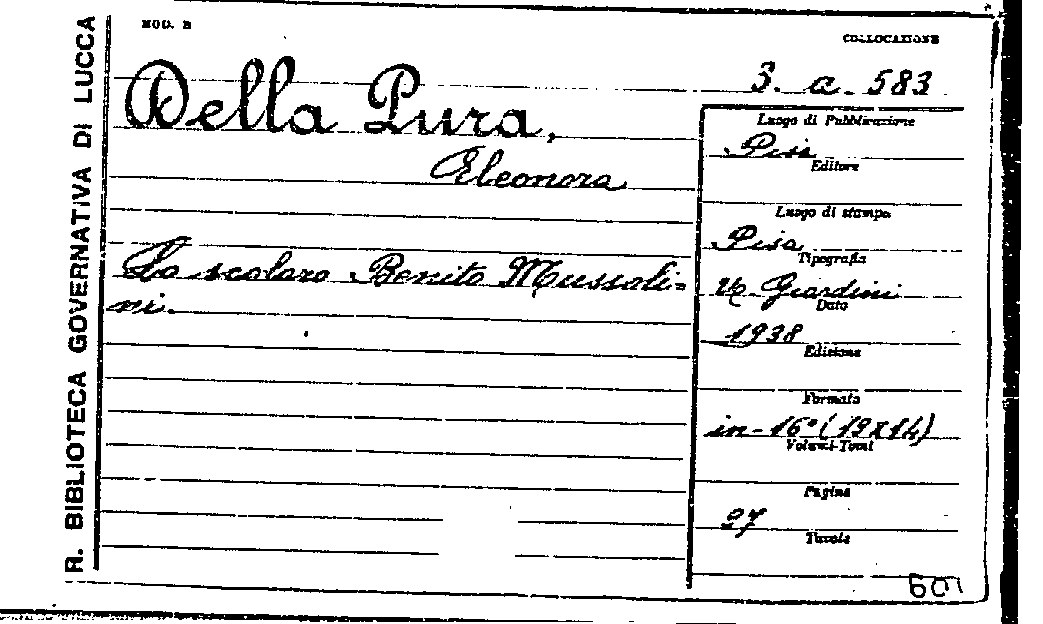 R. BIBLIOTECA GOVERNATIVA DI LUCCA
MOD. B
COLLOCAZIONE
3. a. 583
Della Pura,
Eleonora
Lo scolaro Benito Mussoli=
ni.
Luogo di Pubblicazione
Pisa
Editore
Luogo di stampa
Pisa
Tipografia
U. Giardini
Data
1938
Edizione
Formato
in-16° (19x14)
Volumi-Tomi
Pagine
27
Tavole
601